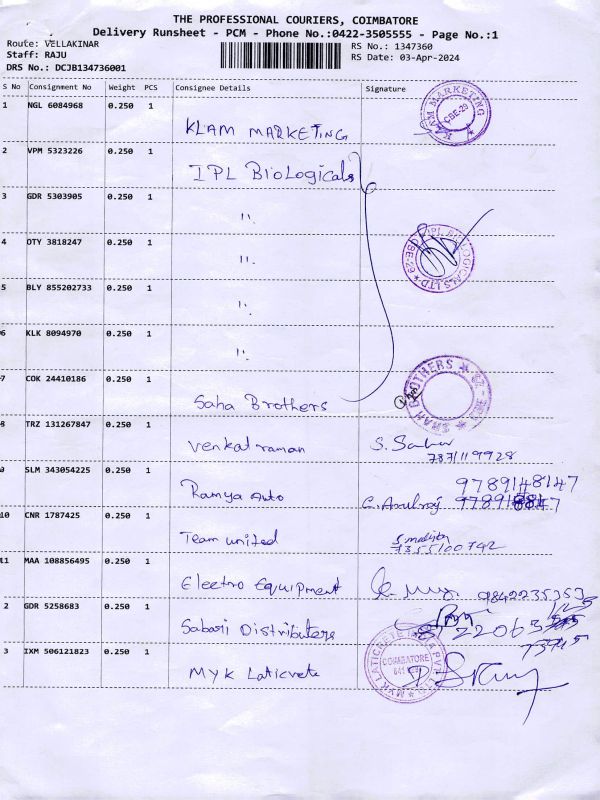 THE PROFESSIONAL COURIERS, COIMBATORE
Delivery Runsheet - PCM - Phone No.:0422-3505555 - Page No.:1
Route: VELLAKINAR
RS No.: 1347360
Staff: RAJU
RS Date: 03-Apr-2024
DRS No.: DCJB134736001
S No Consignment No Weight PCS Consignee Details Signature
1 NGL 6084968 0.250 1 KLAM MARKETING
KLAM MARKETING CBE-29
2 VPM 5323226 0.250 1 IPL BioLogicals
3 GDR 5303905 0.250 1 "
4 OTY 3818247 0.250 1 "
5 BLY 855202733 0.250 1 "
6 KLK 8094970 0.250 1 "
7 COK 24410186 0.250 1 Saha Brothers
BROTHERS
8 TRZ 131267847 0.250 1 Venkatraman
7871119928
9 SLM 343054225 0.250 1 Ramya Auto
9789148147
10 CNR 1787425 0.250 1 Team united
7355100742
11 MAA 108856495 0.250 1 Electro Equipment
9842235353
2 GDR 5258683 0.250 1 Sabari Distributers
3 IXM 506121823 0.250 1 MYK Laticrete
COIMBATORE